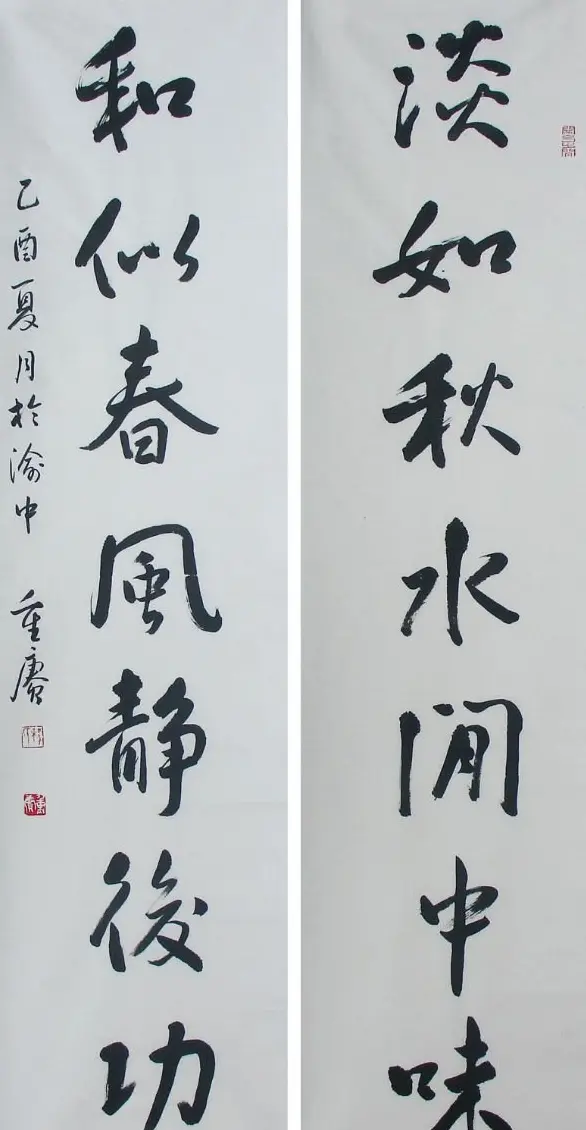 淡如秋水閒中味
和似春風靜後功
乙酉夏月於渝中 重賡